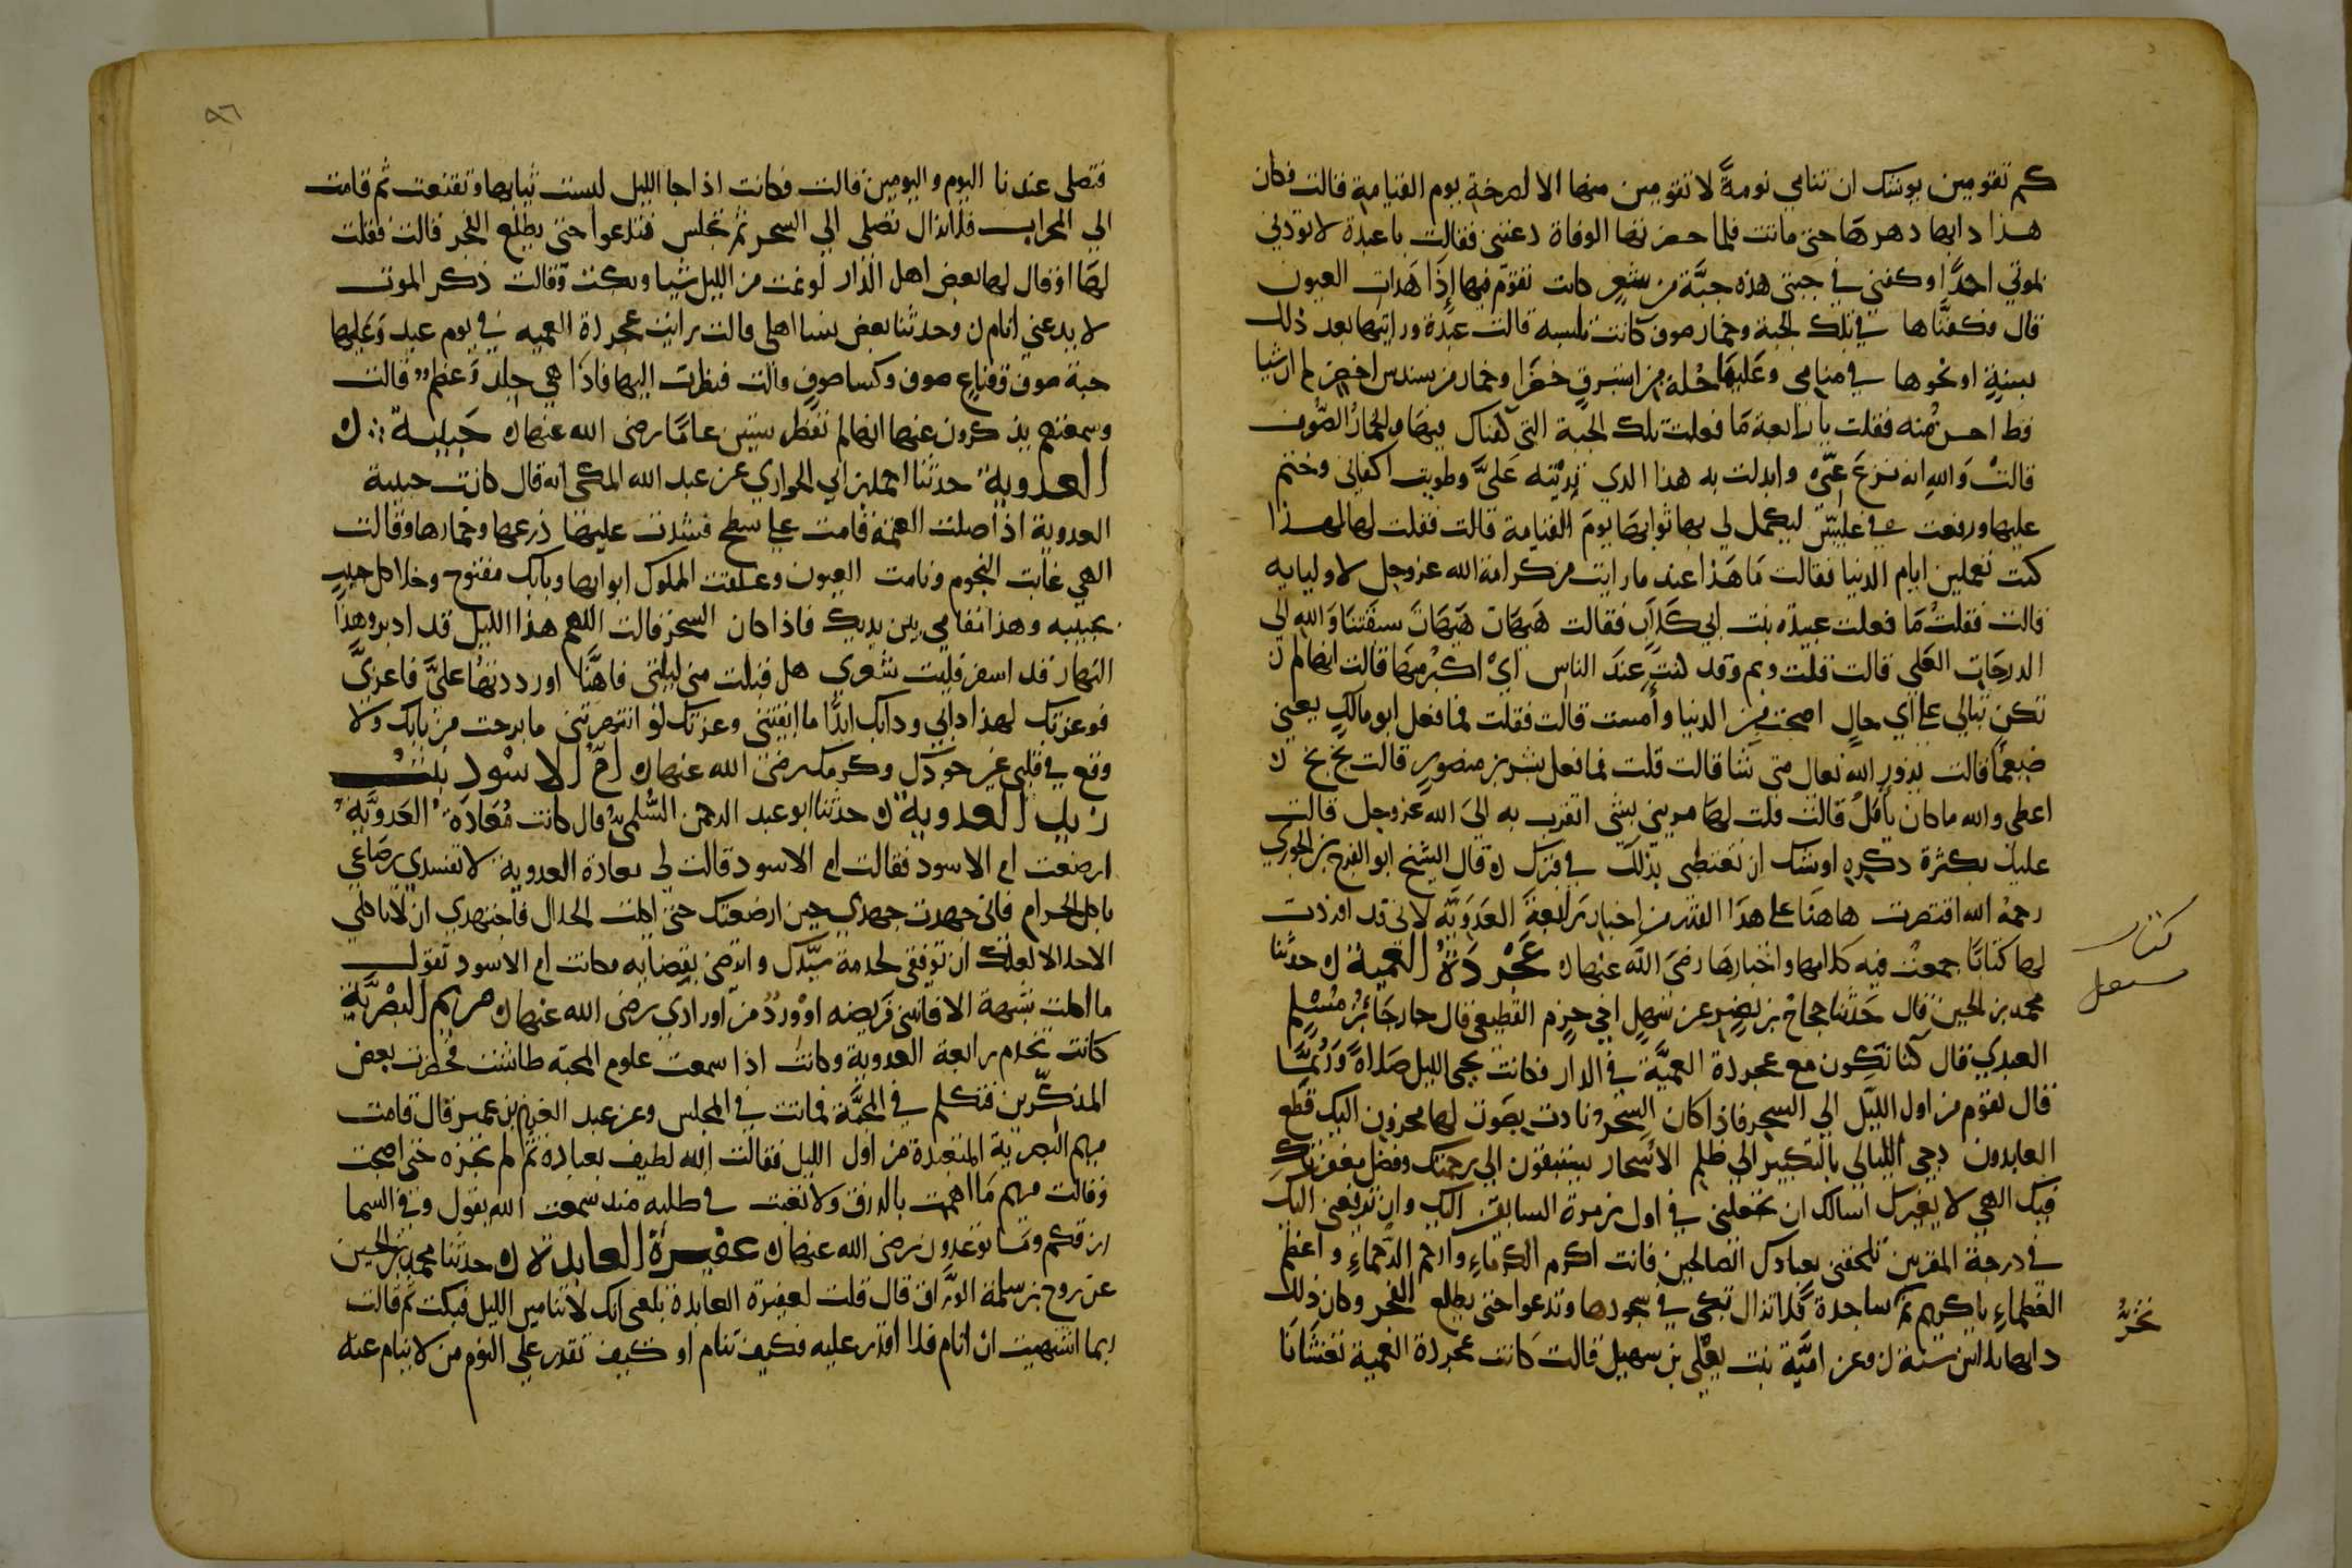 كم تقومين يوشك ان تنامي نومةً لا تقومين منها الا لصرخة يوم القيامة قالت فكان
هذا دابها دهرها حتى ماتت فلما حضرتها الوفاة دعتني فقالت يا عبدة لا توذني
بموتي احدًا وكفنيني في جبتي هذه جبَّة من شعرٍ كانت تقوم فيها إذا هدات العيون
قال فكفنَّاها في تلك الجبة وخمار صوف كانت تلبسه قالت عبدة ورايتها بعد ذلك
بسنةٍ او نحوها في منامي وعليها حُلة من استبرق خضرا وخمار من سندس اخضر لم ار شيا
قط احسن منه فقلت يا رابعة ما فعلت تلك الجبة التي كفناك فيها والخمار الصوف
قالت والله انه نزع عني وابدلت به هذا الذي ترينه عليَّ وطويت اكفاني وختم
عليها ورفعت في عليين ليكمل لي بها ثوابها يوم القيامة قالت فقلت لها لهذا
كنت تعملين ايام الدنيا فقالت ما هذا عند ما رايت من كرامة الله عز وجل لاوليايه
قالت فقلت ما فعلت عبيدة بنت ابي كلاب فقالت هيهات هيهات سبقتنا والله الي
الدرجات العلي قالت قلت وبم وقد كنتِ عند الناس اي اكبر منها قالت انها لم
تكن تبالي على اي حالٍ اصبحت من الدنيا وأمست قالت فقلت فما فعل ابو مالك يعني
ضيغمًا قالت يزور الله تعال متى شا قالت قلت فما فعل بشر بن منصور قالت بخ بخ
اعطي والله ما كان يأمل قالت قلت لها مريني بشي اتقرب به الى الله عز وجل قالت
عليك بكثرة ذكره اوشك ان تغتبطي بذلك في قبرك قال الشيخ ابو الفرج بن الجوزي
رحمه الله اقتصرت هاهنا على هذا القدر من اخبار رابعة العدوية لاني قد افردت
لها كتابًا جمعت فيه كلامها واخبارها رضي الله عنها عَجْرَدَةُ العميّة حدثنا
محمد بن الحسين قال حدثنا حجاج بن نضير عن سهل اخي حزم القطيعي قال حا رجاء بن مسلم
العبدي قال كنا نكون مع عجردة العميَّة في الدار فكانت تحيي الليل صلاةً ورُبَّما
قال تقوم من اول الليل الي السحر فاذا كان السحر نادت بصوت لها محزون اليك قطع
العابدون دجى الليالي بالتبكير الي ظلم الاسحار يستبقون الي رحمتك وفضل مغفرتك
فبك الهي لا بغيرك اسالك ان تجعلني في اول زمرة السابقين اليك وان ترفعني اليك
في درجة المقربين تلحقني بعبادك الصالحين فانت اكرم الكرماءِ وارحم الرحماءِ واعظم
العظماءِ يا كريم ثم ساجدة فلا تزال تبكي في سجودها وتدعوا حتى يطلع الفجر وكان ذلك
دابها ثلاثين سنة وعن اميَّة بنت يعلي بن سهيل قالت كانت عجردة العمية تغشانا
كتاب
مستعمل
تخرُّ
٩٦
فتصلى عندنا اليوم واليومين قالت فكانت اذا جا الليل لبست ثيابها وتقنعت ثم قامت
الي المحراب فلا تزال تصلى الي السحر ثم تجلس فتدعوا حتى يطلع الفجر قالت فقلت
لها او قال لها بعض اهل الدار لو نمت من الليل شيا وبكت وقالت ذكر الموت
لا يدعني انام وحدثنا بعض نسا اهلي قالت رايت عجردة العميه في يوم عيد وعليها
جبة صوف وقناع صوف وكسا صوفٍ قالت فنظرت اليها فاذا هي جلد وعظم قالت
وسمعتهم يذكرون عنها انها لم تفطر ستين عامًا رضى الله عنها حبيبة
العدوية حدثنا احمد بن ابي الحواري عن عبد الله المكي انه قال كانت حبيبة
العدوية اذا صلت العتمة قامت على سطح فشدت عليها درعها وخمارها وقالت
الهي غابت النجوم ونامت العيون وغلقت الملوك ابوابها وبابك مفتوح وخلا كل حبيب
بحبيبه وهذا مقامي بين يديك فاذا كان السحر قالت اللهم هذا الليل قد ادبر وهذا
النهار قد اسفر فليت شعري هل قبلت مني ليلتي فاهنَّا او رددتها عليَّ فاعزيَّ
فوعزتك لهذا دابي ودابك ابدًا ما ابقيتني وعزتك لو انتهرتني ما برحت من بابك ولا
وقع في قلبي غير جودك وكرمك رضى الله عنها امّ الاسْود بنت
زيد العدوية حدثنا ابو عبد الرحمن السُّلمي قال كانت مُعَادَة العَدوَيَّة
ارضعت ام الاسود فقالت ام الاسود قالت لي معادة العدوية لا تفسدي رضاعي
باكل الحرام فاني جهدت جهدي حين ارضعتك حتى اكلت الحلال فاجتهدي ان لا تاكلي
الاحلالا لعلك ان توفقي لخدمة سيّدك والرضى بقضايه وكانت ام الاسود تقول
ما اكلت شبهة الا فاتني فريضه او وردٌ من اورادي رضى الله عنها مريم البَصْرِيَّة
كانت تخدم رابعة العدوية وكانت اذا سمعت علوم المحبة طاشت فحضرت بعض
المذكّرين فتكلم في المحبَّة فماتت في المجلس وعن عبد العزيز بن عمير قال قامت
مريم البصرية المتعبدة من اول الليل فقالت الله لطيف بعباده ثم لم تجزه حتى اصبحت
وقالت مريم ما اهممت بالرزق ولا تعبت في طلبه منذ سمعت الله يقول وفي السما
رزقكم وما توعدون رضى الله عنها عفيرة العابدة حدثنا محمد بن الحسين
عن روح بن سلمة الورَّاق قال قلت لعفيرة العابدة بلغني انك لا تنامين الليل فبكت ثم قالت
ربما اشتهيت ان انام فلا اقدر عليه فكيف تنام او كيف تقدر علي النوم من لا ينام عنه